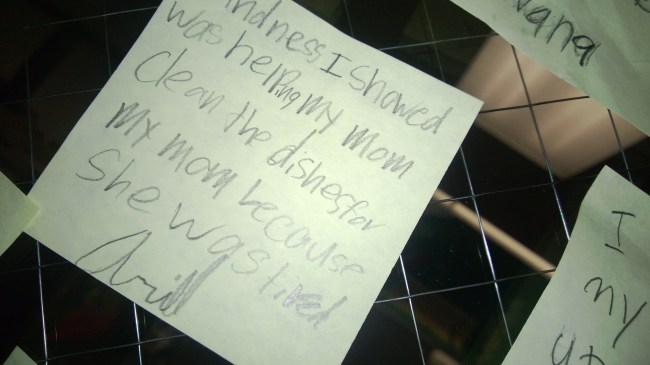 indness I showed
was helping my mom
Clean the dishes for
my mom because
She was tired
vana
I
my